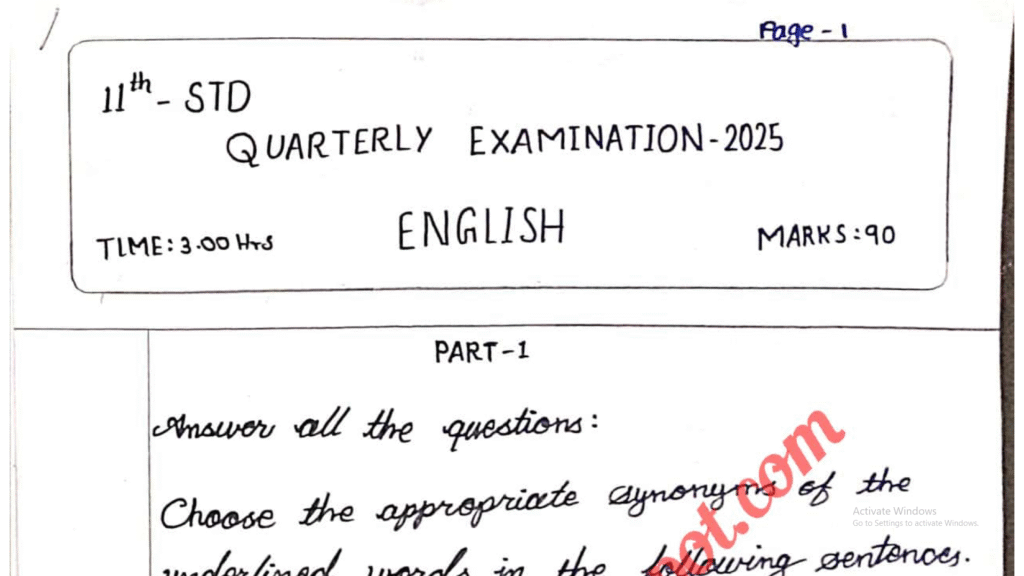 Page - 1
11th - STD
QUARTERLY EXAMINATION-2025
ENGLISH
TIME: 3.00 Hrs
MARKS: 90
PART-1
Answer all the questions:
Choose the appropriate synonyms of the
underlined words in the following sentences.
ot.com
Activate Windows
Go to Settings to activate Windows.